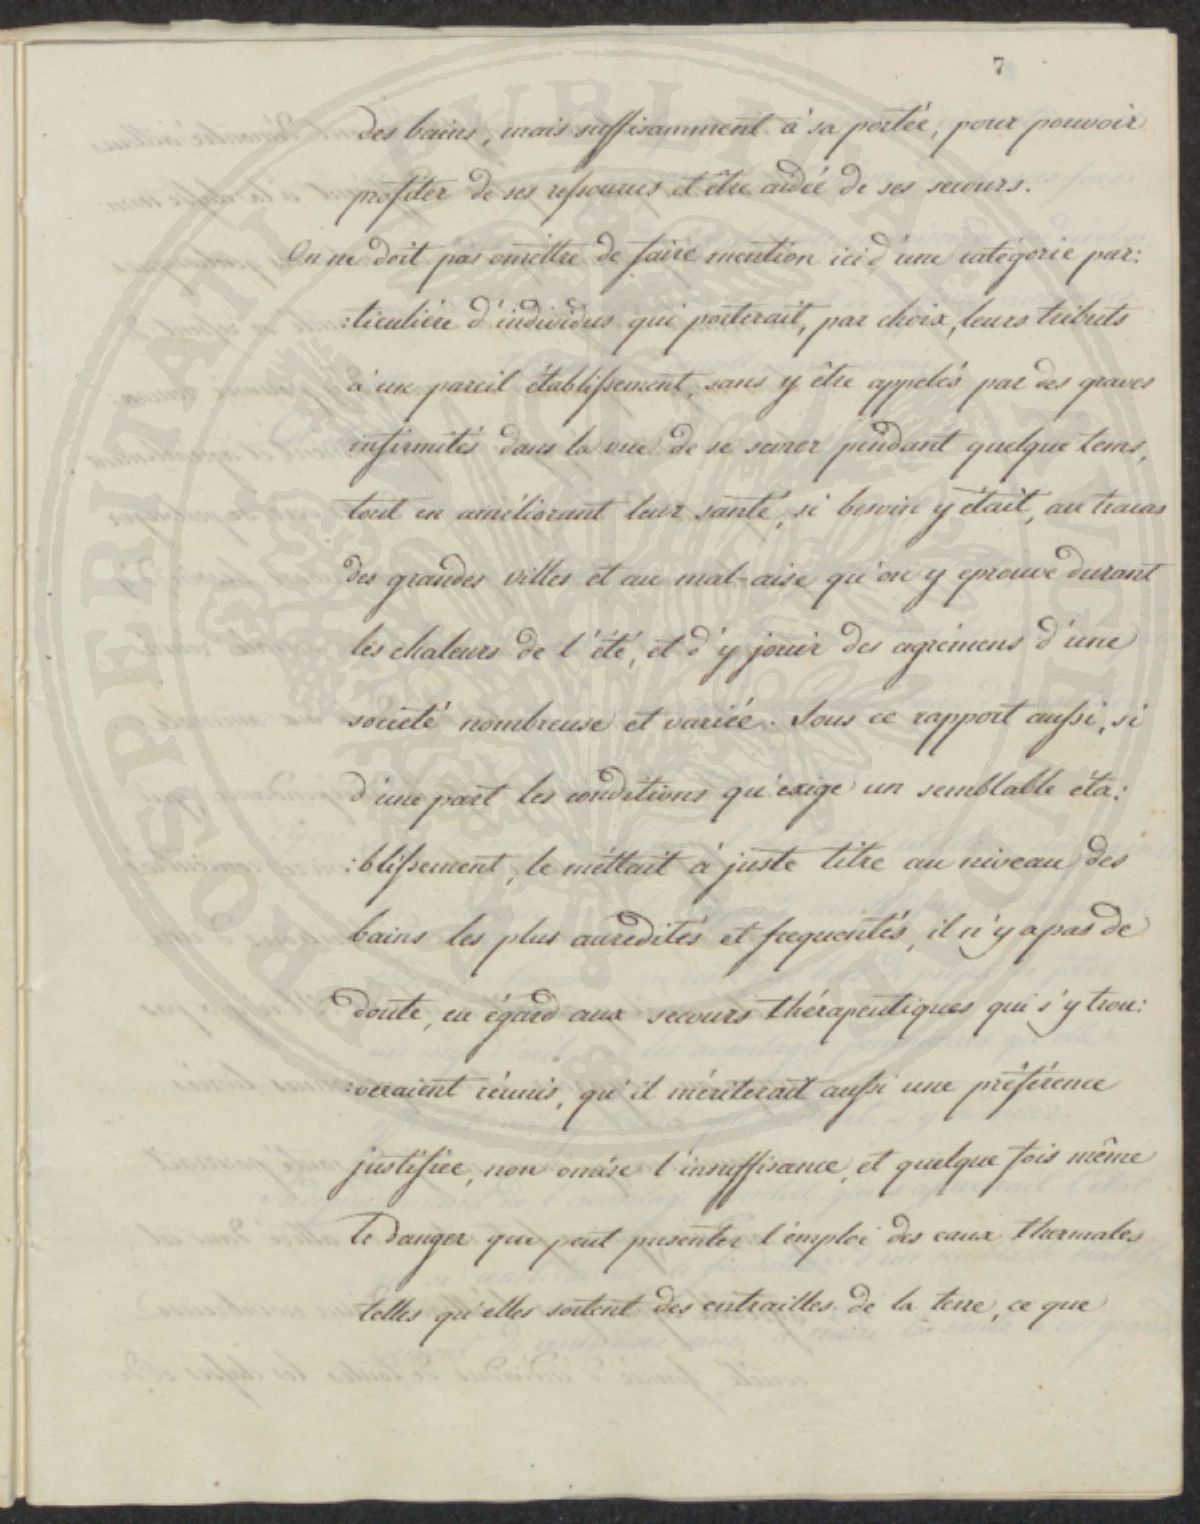 7
des bains, mais suffisamment à sa portée, pour pouvoir
profiter de ses ressources et être aidée de ses secours.
On ne doit pas omettre de faire mention ici d'une catégorie par:
:ticulière d'individus qui porterait, par choix, leurs tributs
à un pareil établissement, sans y être appelés par des graves
infirmités dans la vue de se sevrer pendant quelque tems,
tout en améliorant leur santé, si besoin y était, au tracas
des grandes villes et au mal-aise qu'on y éprouve durant
les chaleurs de l'été, et d'y jouir des agrémens d'une
société nombreuse et variée. Sous ce rapport aussi, si
d'une part les conditions qu'exige un semblable éta:
:blissement, le méttait à juste titre au niveau des
bains les plus accredités et frequentés, il n'y a pas de
doute, eu égard aux secours thérapeutiques qui s'y trou:
:veraient réunis, qu'il mériterait aussi une préférence
justifiée, non omise l'insuffisance, et quelque fois même
le danger que peut présenter l'emploi des eaux thermales
telles qu'elles sortent des entrailles de la terre, ce que
PROSPERITATI PUBLICAE